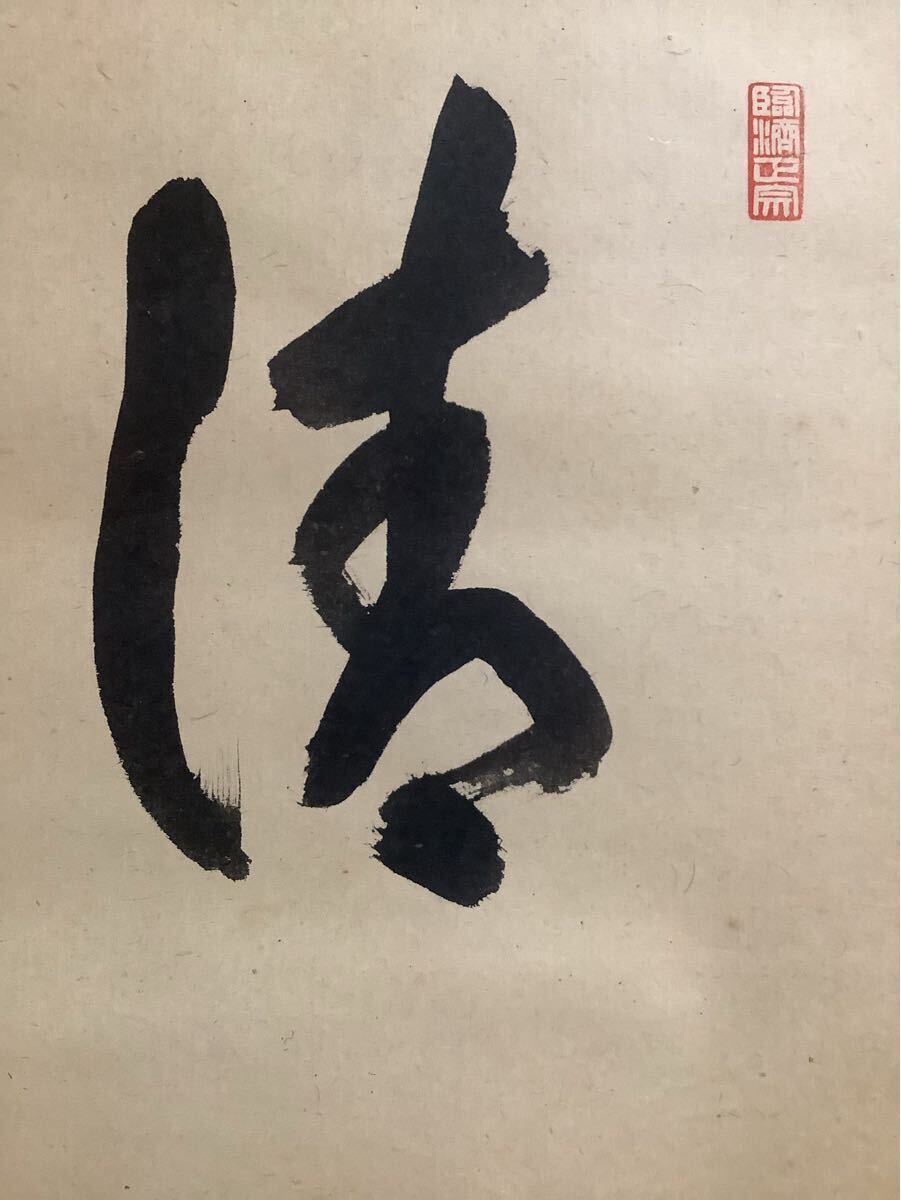 臨濟正宗
清